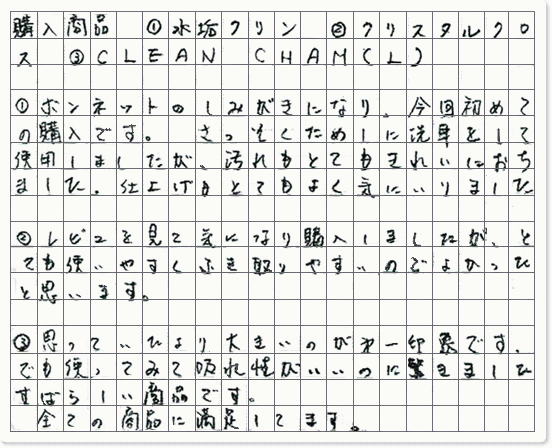 購入商品　①水垢クリン　②クリスタルクロ
ス　③CLEAN　CHAM(L)
①ボンネットのしみがきになり、今回初めて
の購入です。　さっそくためしに洗車をして
使用しましたが、汚れもとてもきれいにおち
ました。仕上げもとてもよく気にいりました
②レビュを見て気になり購入しましたが、と
ても使いやすくふき取りやすいのでよかった
と思います。
③思っていたより大きいのが第一印象です。
でも使ってみて吸れ性がいいのに驚きました
すばらしい商品です。
全ての商品に満足してます。